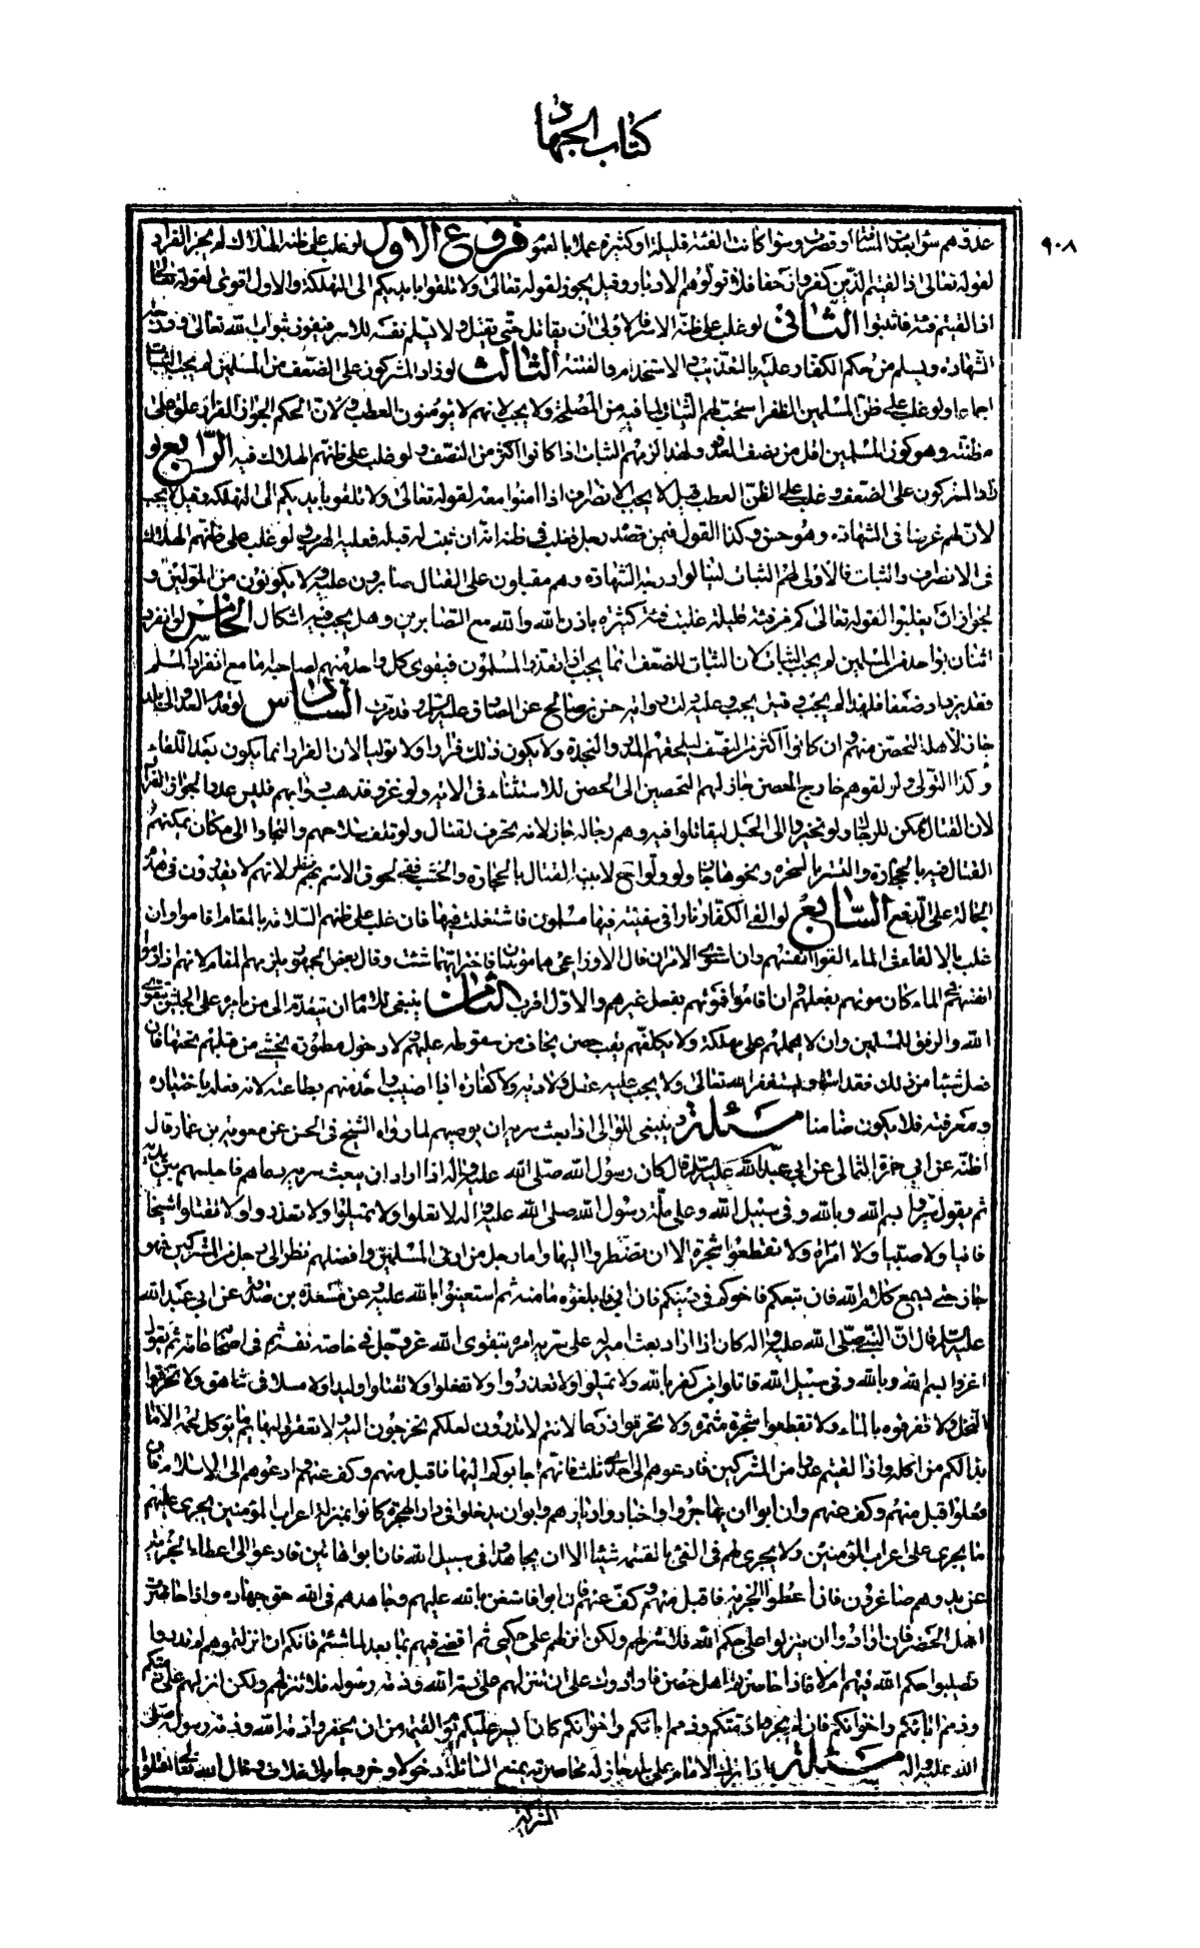 كتاب الجهاد
٩٠٨
عدوهم سواء بعدت المسافة او قصرت وسواء كانت الفئة قليلة او كثيرة عملا بالعموم فروع الاول لو غلب على ظنه الهلاك لم يجز الفرار
لقوله تعالى اذا لقيتم الذين كفروا زحفا فلا تولوهم الادبار وقيل يجوز لقوله تعالى ولا تلقوا بايديكم الى التهلكة والاول اقوى لقوله تعالى
اذا لقيتم فئة فاثبتوا الثانى لو غلب على ظنه الاسر فالاولى ان يقاتل حتى يقتل ولا يسلم نفسه للاسر ليفوز بثواب الله تعالى ودرجة
الشهادة ويسلم من تحكم الكفار عليه بالتعذيب والاستخدام والفتنة الثالث لو زاد المشركون على الضعف من المسلمين لم يجب الثبات
اجماعا ولو غلب على ظن المسلمين الظفر استحب لهم الثبات لما فيه من المصلحة ولا يجب لانهم لا يؤمنون العطب ولان الحكم الجواز الفرار علق على
مظنته وهو كون المسلمين اقل من نصف العدد ولهذا لزمهم الثبات اذا كانوا اكثر من النصف ولو غلب على ظنهم الهلاك فيه الرابع لو
زاد المشركون على الضعف وغلب على الظن العطب قيل لا يجب الانصراف اذا امنوا معه لقوله تعالى ولا تلقوا بايديكم الى التهلكة وقيل لا يجب
لان لهم غرضا فى الشهادة وهو حسن وكذا القول فيمن قصده رجل فغلب فى ظنه انه ان ثبت له قتله فعليه الهرب ولو غلب على ظنهم الهلاك
فى الانصراف والثبات فالاولى لهم الثبات لينالوا درجة الشهادة وهم مقبلون على القتال صابرون عليه ولا يكونون من المولين و
لجواز ان يغلبوا لقوله تعالى كم من فئة قليلة غلبت فئة كثيرة باذن الله والله مع الصابرين وهل يجب فيه اشكال الخامس لو انفرد
اثنان بواحد من المسلمين لم يجب الثبات لان الثبات للضعف انما يجب اذا تعدد المسلمون فيقوى كل واحد منهم لصاحبه اما مع انفراد المسلم
فقد يزداد ضعفا فلهذا لم يجب وقيل يجب وعليه دلت رواية حسن بن صالح عن الصادق عليه السلام وقد مرت السادس لو قصد العدو الى بلد
جاز لاهله التحصن منهم وان كانوا اكثر من النصف ليلحقهم المدد والنجدة ولا يكون ذلك فرارا ولا توليا لان الفرار انما يكون بعد اللقاء
وكذا التولى ولو لقوهم خارج الحصن جاز لهم التحصين الى الحصن للاستثناء فى الاية ولو غزوا فذهبت دوابهم فليس عذرا لجواز الفرار
لان القتال ممكن للرجال ولو تحيزوا الى الجبل ليقاتلوا فيه وهم رجالة جاز لانه تحرف لقتال ولو تلف سلاحهم والتجاوا الى مكان يمكنهم
القتال فيه بالحجارة والتستر بالشجرة ونحوها جاز ولو ولوا مع لا بنية القتال بالحجارة والخشب ففى لحوق الاثم بهم نظر لانهم لا يقدرون فى هذه
الحالة على الدفع السابع لو القى الكفار نارا فى سفينة فيها مسلمون فاشتعلت فيها فان غلب على ظنهم السلامة بالمقام اقاموا وان
غلب بالالقاء فى الماء القوا انفسهم وان استوى الامران قال الاوزاعى هما موتتان فاختر ايتهما شئت وقال بعض الجمهور يلزمهم المقام لانهم اذا رموا
انفسهم فى الماء كان موتهم بفعلهم وان اقاموا فموتهم بفعل غيرهم والاول اقرب الثامن ينبغى للامام ان يتقدم الى من يامره على الجيش بتقوى
الله والرفق للمسلمين وان لا يحملهم على مهلكة ولا يكلفهم نقب حصن يخاف من سقوطه عليهم ولا دخول مطمورة يخشى من قتلهم تحتها فان
فعل شيئا من ذلك فقد اساء ويستغفر الله تعالى ولا يجب عليه عقل ولا دية ولا كفارة اذا اصيب واحد منهم بطاعته لانه فعله باختياره
ومعرفته فلا يكون ضامنا مسئلة وينبغى للوالى اذا بعث سرية ان يوصيهم لما رواه الشيخ فى الحسن عن معوية بن عمار قال
اظنه عن ابى حمزة الثمالى عن ابى عبد الله عليه السلام قال كان رسول الله صلى الله عليه واله اذا اراد ان يبعث سرية دعاهم فاجلسهم بين يديه
ثم يقول سيروا بسم الله وبالله وفى سبيل الله وعلى ملة رسول الله صلى الله عليه واله لا تغلوا ولا تمثلوا ولا تغدروا ولا تقتلوا شيخا
فانيا ولا صبيا ولا امراة ولا تقطعوا شجرة الا ان تضطروا اليها وايما رجل من ادنى المسلمين وافضلهم نظر الى رجل من المشركين فهو
جار حتى يسمع كلام الله فان تبعكم فاخوكم فى دينكم فان ابى فابلغوه مامنه ثم استعينوا بالله عليه وعن مسعدة بن صدقة عن ابى عبد الله
عليه السلام قال ان النبى صلى الله عليه واله كان اذا اراد بعث اميرا له على سرية امره بتقوى الله عز وجل فى خاصة نفسه ثم فى اصحابه عامة ثم يقول
اغزوا بسم الله وبالله وفى سبيل الله قاتلوا من كفر بالله ولا تمثلوا ولا تغدروا ولا تغلوا ولا تقتلوا وليدا ولا متبتلا فى شاهق ولا تحرقوا
النخل ولا تغرقوه بالماء ولا تقطعوا شجرة مثمرة ولا تحرقوا زرعا لانكم لا تدرون لعلكم تحتاجون اليه ولا تعقروا البهايم مما يوكل لحمه الا ما
بدا لكم من اكله واذا لقيتم عدوا من المشركين فادعوهم الى احدى ثلث فان هم اجابوكم اليها فاقبل منهم وكف عنهم وادعوهم الى الاسلام فان
فعلوا فاقبل منهم وكف عنهم وان ابوا ان يهاجروا واختاروا ديارهم وابوا ان يدخلوا فى دار الهجرة كانوا بمنزلة اعراب المؤمنين يجرى عليهم
ما يجرى على اعراب المؤمنين ولا يجرى لهم فى الفئ والقسمة شيئا الا ان يجاهدوا فى سبيل الله فان ابوا هاتين فادعوا الى اعطاء الجزية
عن يد وهم صاغرون فان اعطوا الجزية فاقبل منهم وكف عنهم فان ابوا فاستعن بالله عليهم وجاهدهم فى الله حق جهاده واذا حاصرت
اهل الحصن فان ارادوك ان ينزلوا على حكم الله فلا تنزلهم ولكن انزلهم على حكمى ثم اقضى فيهم بما بعد لما شئتم فانكم ان انزلتموهم لم تدروا
تصيبوا حكم الله فيهم ام لا فاذا حاصرتم اهل حصن فارادوك على ان تنزلهم على ذمة الله وذمة رسوله فلا تنزلهم ولكن انزلهم على ذمتكم
وذمم ابائكم واخوانكم فانكم ان تخفروا ذمتكم وذمم ابائكم واخوانكم كان ايسر عليكم يوم القيمة من ان تخفروا ذمة الله وذمة رسوله صلى
الله عليه واله مسئلة اذا نزل الامام على بلد جاز له محاصرته بمنع السائلة دخولا وخروجا بلا خلاف وقال الله تعالى اقتلوا
المشركين